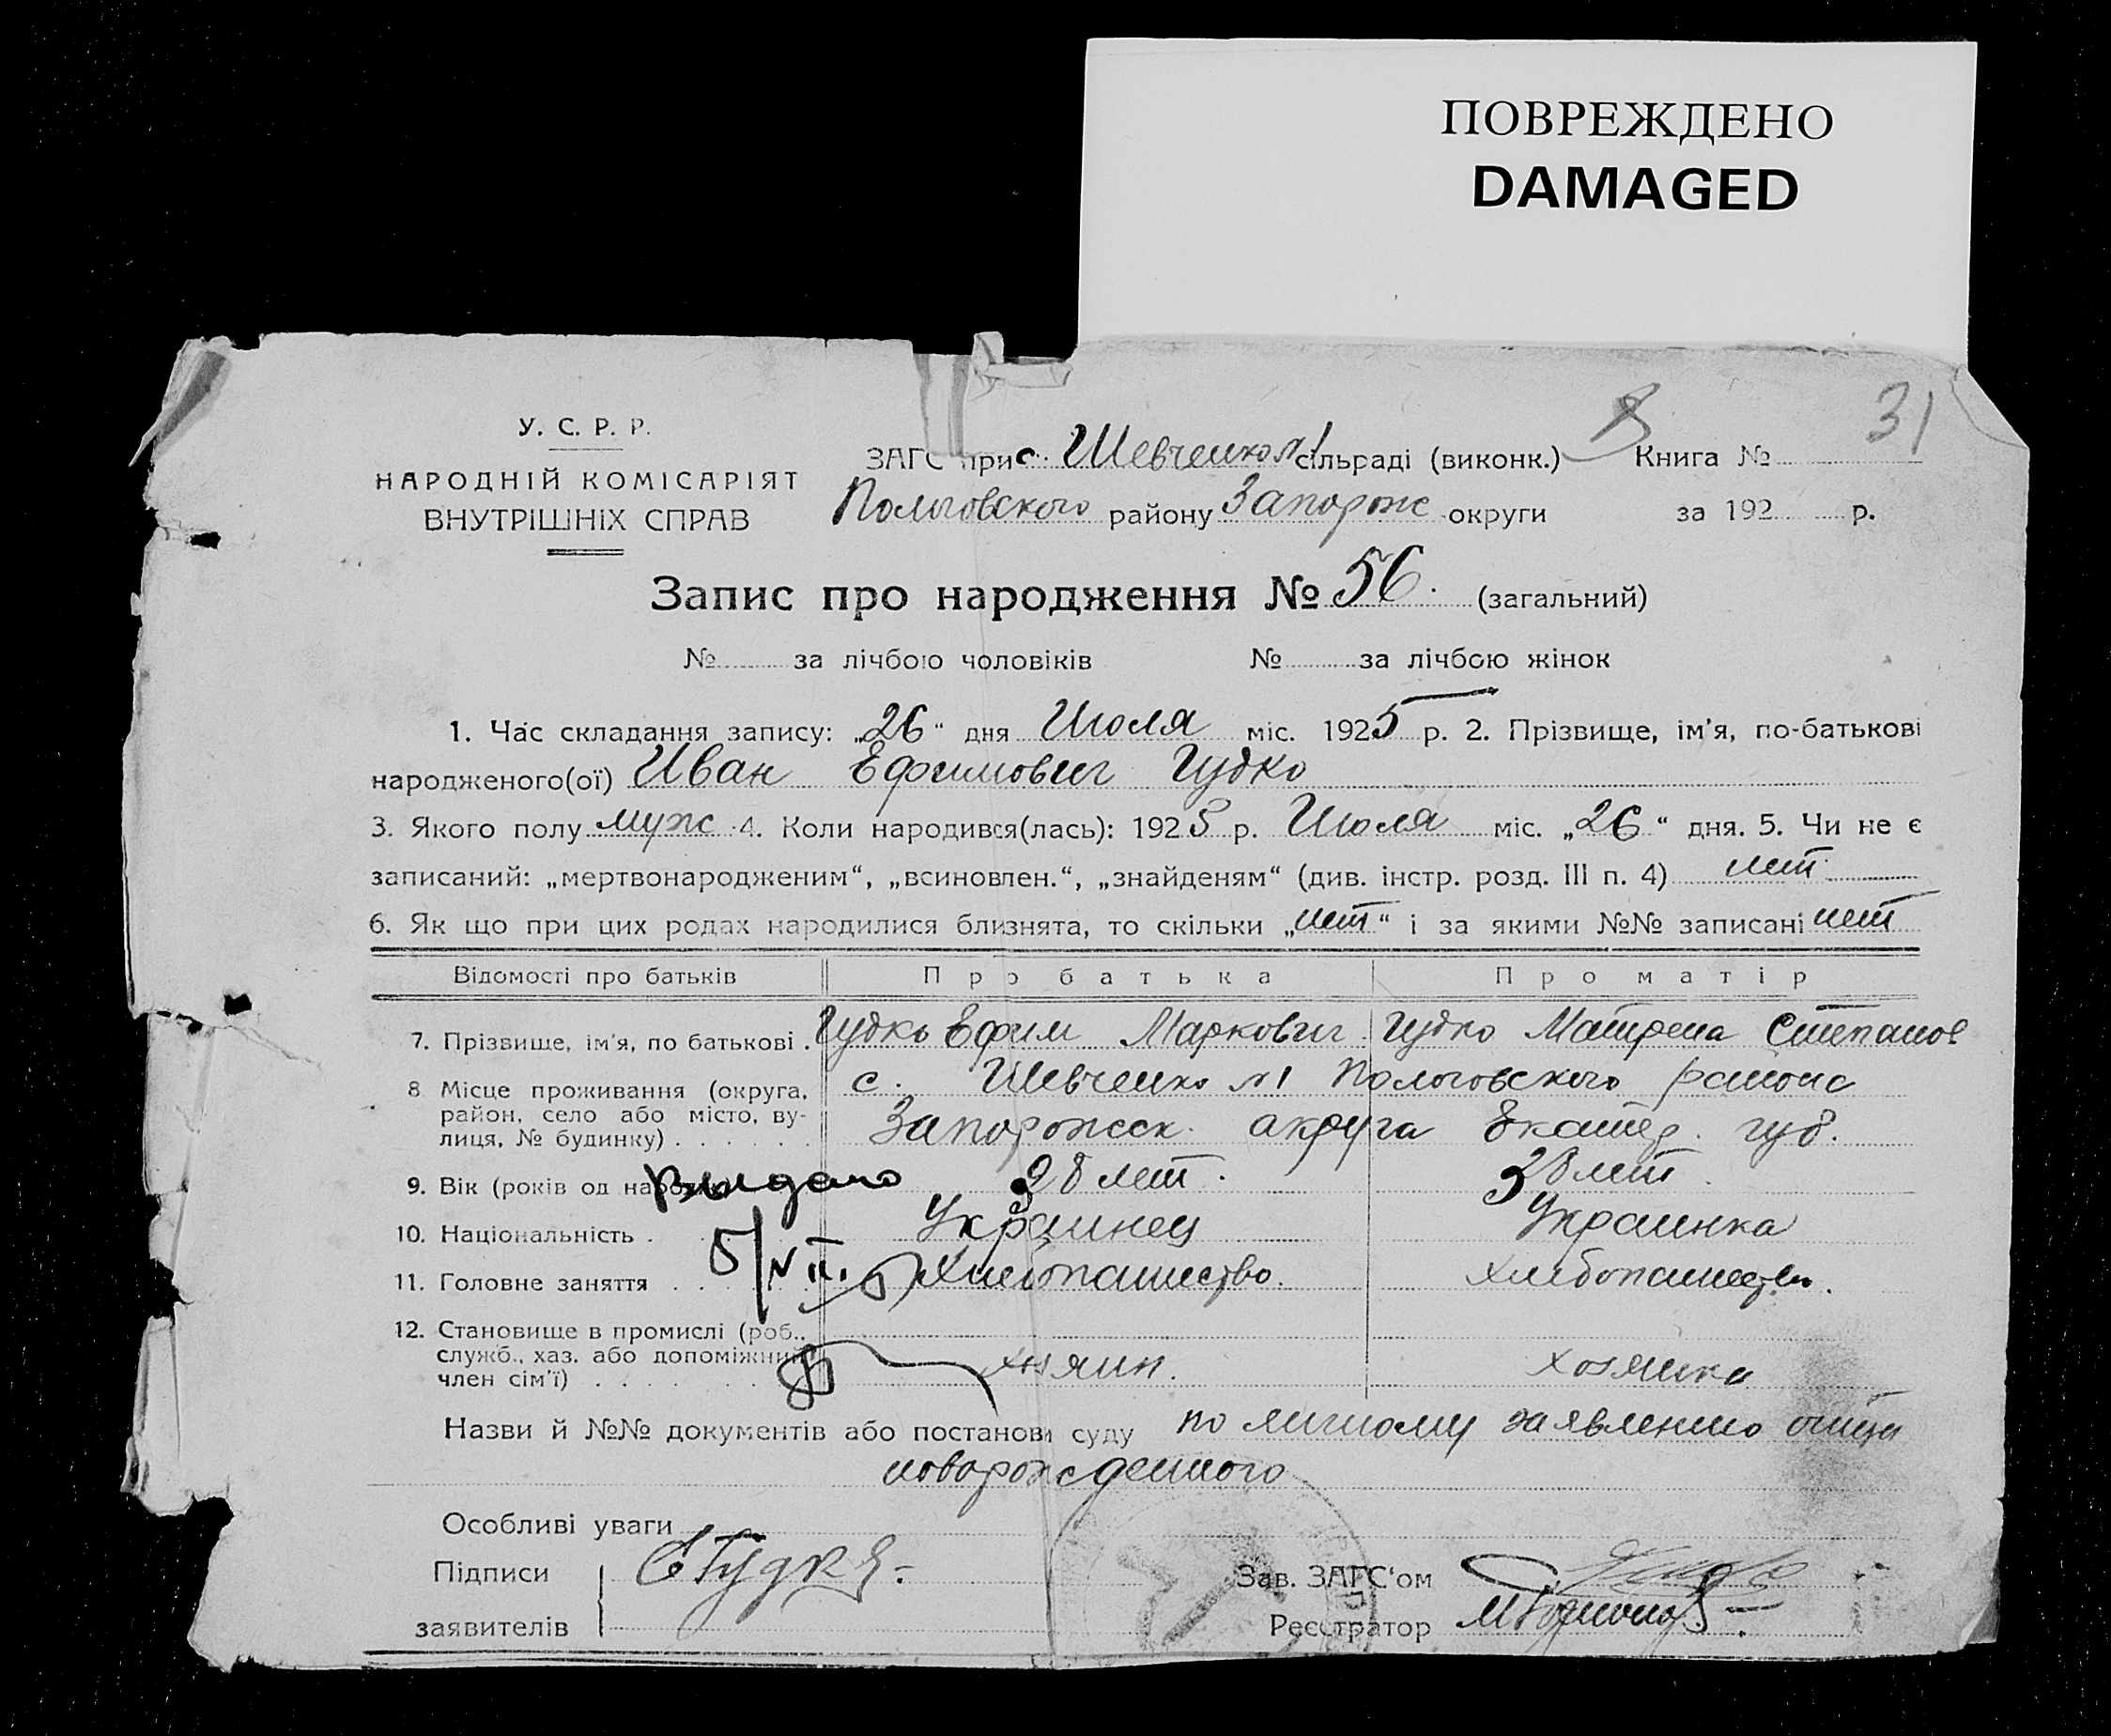 ПОВРЕЖДЕНО
DAMAGED
31
У. С. Р. Р.
НАРОДНІЙ КОМІСАРІЯТ
ВНУТРІШНІХ СПРАВ
ЗАГС при с. Шевченко №1 сільраді (виконк.) Книга №
Пологовского району Запорож округи за 192 р.
Запис про народження № 56. (загальний)
№ за лічбою чоловіків № за лічбою жінок
1. Час складання запису: „26“ дня Июля міс. 1925 р. 2. Прізвище, ім'я, по-батькові
народженого(ої) Иван Ефимович Гудко
3. Якого полу муж 4. Коли народився(лась): 1925 р. Июля міс. „26“ дня. 5. Чи не є
записаний: „мертвонародженим“, „всиновлен.“, „знайденям“ (див. інстр. розд. III п. 4) нет
6. Як що при цих родах народилися близнята, то скільки „нет“ і за якими №№ записані нет
Відомості про батьків Про батька Про матір
7. Прізвище, ім'я, по батькові . Гудко Ефим Маркович Гудко Матрена Степанов
8 Місце проживання (округа, с. Шевченко №1 Пологовского района
район, село або місто, ву-
лиця, № будинку) . . . . . . Запорожск. акруга Екатер. губ.
9. Вік (років од народж.) Выдано 28 лет. 38 лет.
10. Національність . Украинец Украинка
5/VII.
11. Головне заняття . . . . Хлебопашество. Хлебопашество.
12. Становище в промислі (роб.,
служб., хаз. або допоміжний хозяин. хозяйка
член сім'ї) . . . . .
Назви й №№ документів або постанови суду по личному заявлению отца
новорожденного
Особливі уваги
Підписи ЕГудко Зав. ЗАГС'ом
заявителів Реєстратор